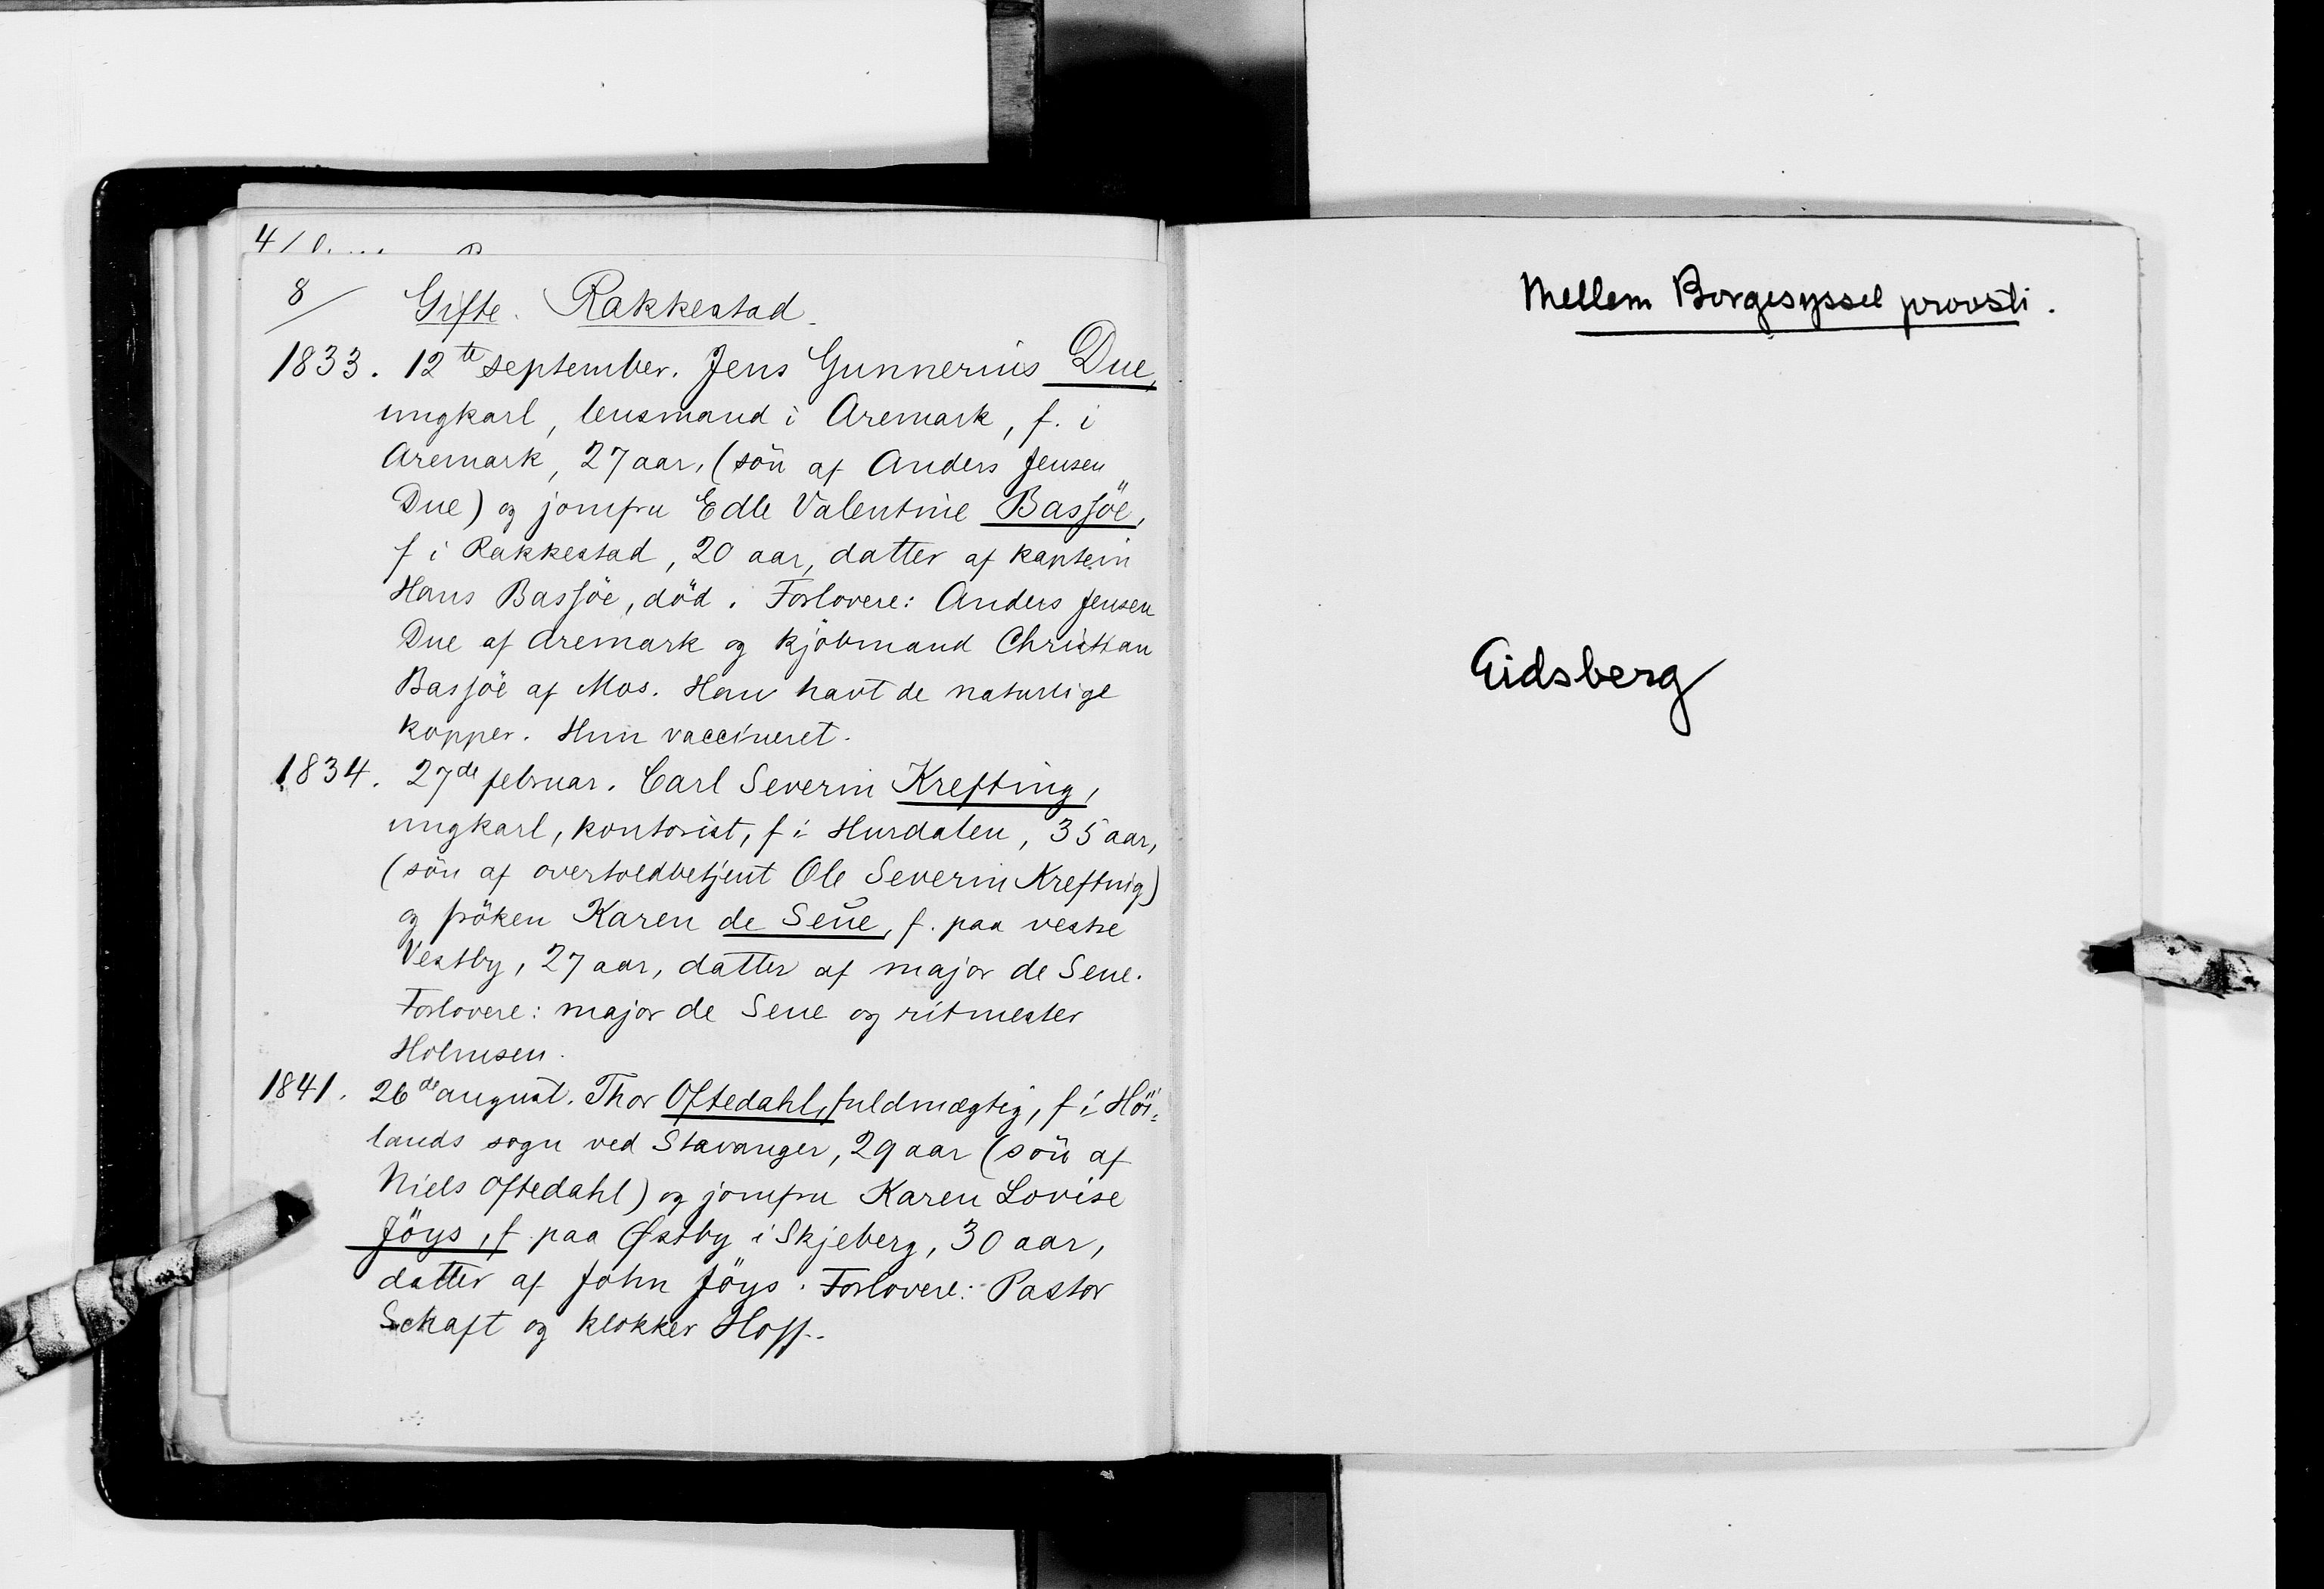 8/ Gifte. Rakkestad.
1833. 12te september. Jens Gunnerius Due,
ungkarl, lensmand i Aremark, f. i
Aremark, 27 aar, (sön af Anders Jensen
Due) og jomfru Edle Valentine Bassöe,
f i Rakkestad, 20 aar, datter af kaptein
Hans Bassöe, död. Forlovere: Anders Jensen
Due af Aremark og kjöbmand Christian
Bassöe af Mos. Han havt de naturlige
kopper. Hun vaccineret.
1834. 27de februar. Carl Severin Krefting,
ungkarl, kontorist, f i Hurdalen, 35 aar,
(sön af overtoldbetjent Ole Severin Krefting)
og fröken Karen de Seüe, f. paa vestre
Vestby, 27 aar, datter af major de Seue.
Forlovere: major de Seue og ritmester
Holmsen.
1841. 26de august. Thor Oftedahl, fuldmægtig, f i Höi-
lands sogn ved Stavanger, 29 aar (sön af
Niels Oftedahl) og jomfru Karen Lovise
Jöys, f paa Østby i Skjeberg, 30 aar,
datter af John Jöys. Forlovere: Pastor
Schaft og klokker Hoff.
Mellem Borgesyssel provsti.
Eidsberg